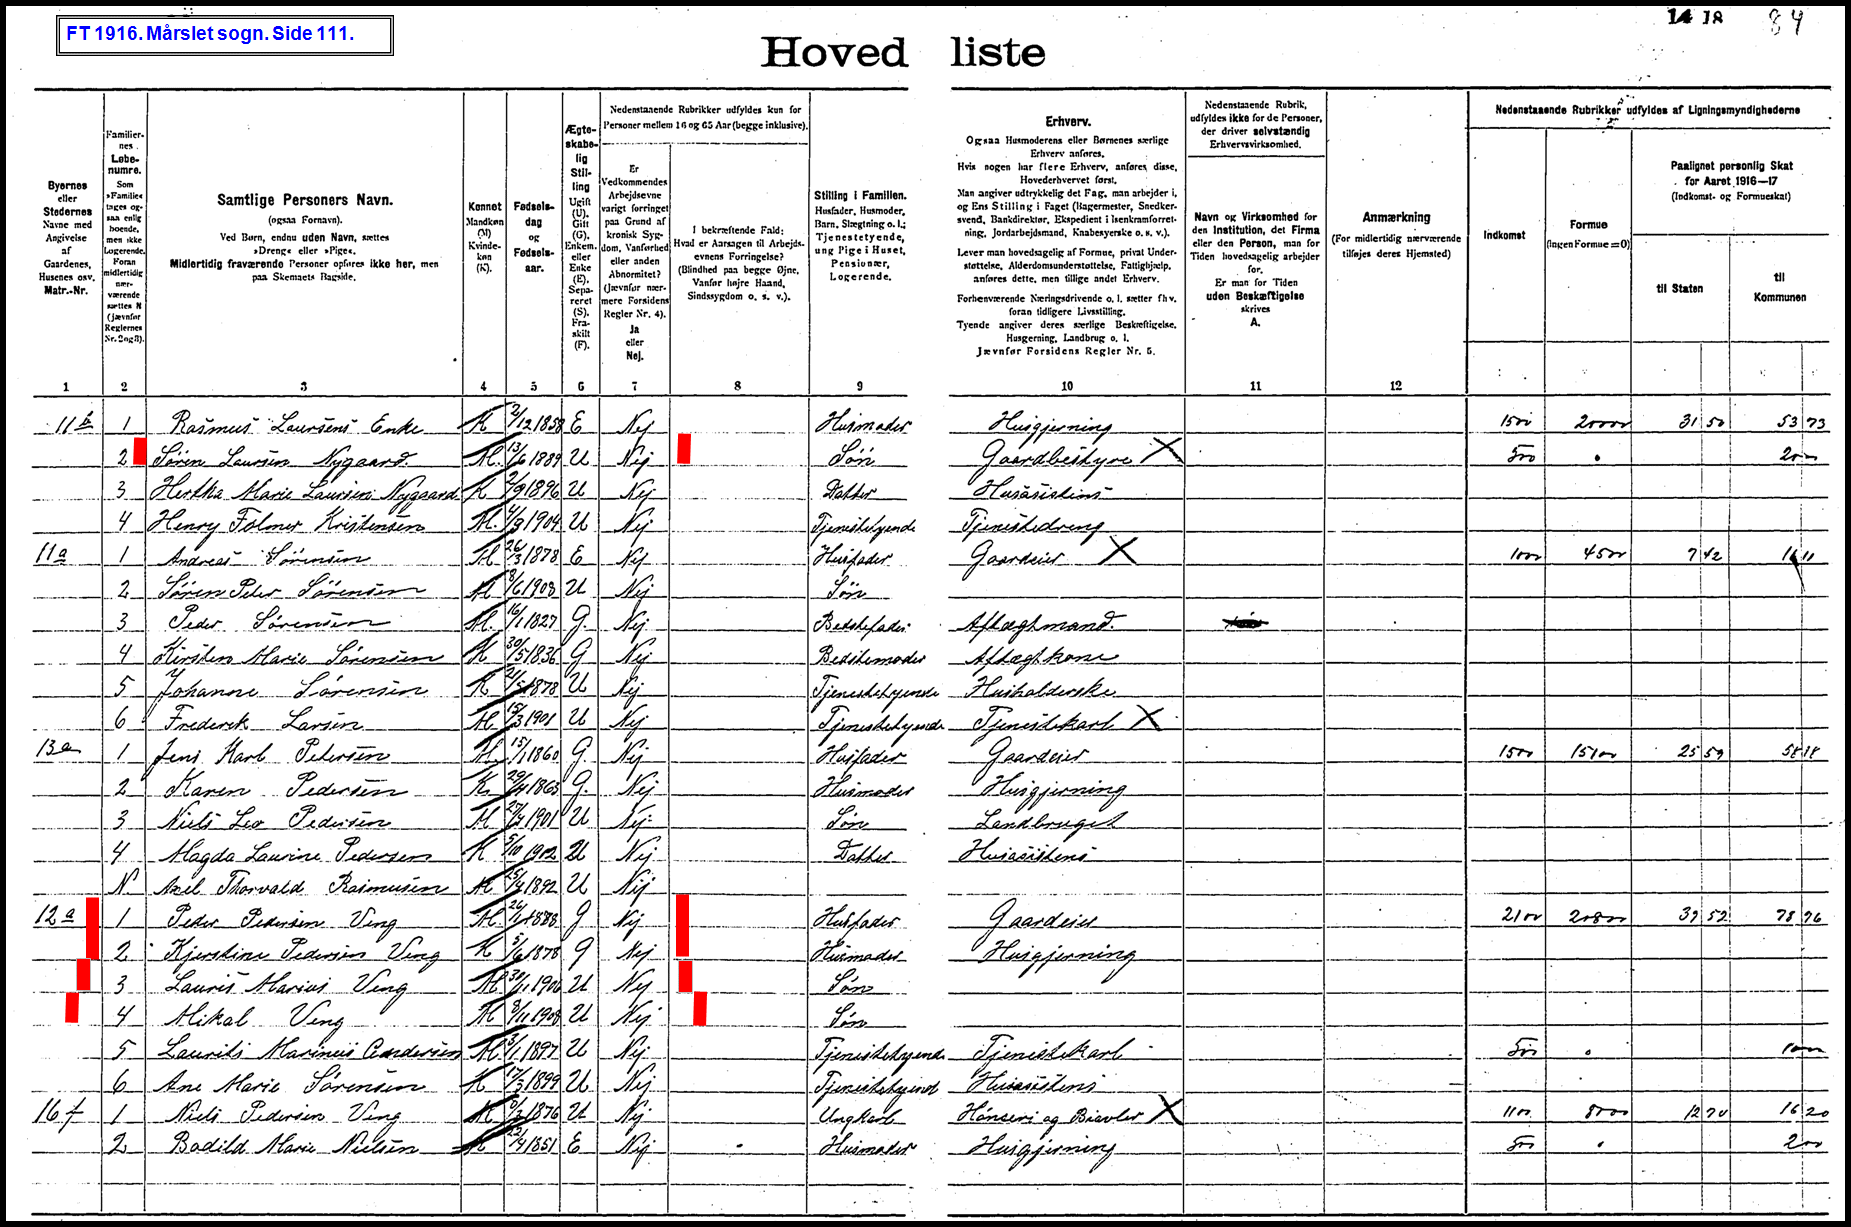 FT 1916. Mårslet sogn. Side 111.
14 18 84
Hoved liste
Byernes eller Stedernes Navne med Angivelse af Gaardenes, Husenes osv. Matr.-Nr.
Familiernes Løbenumre. Som »Familie« tages ogsaa enlig boende, men ikke Logerende. Foran midlertidig nærværende sættes N (jævnfør Reglernes Nr. 2 og 3).
Samtlige Personers Navn.
(ogsaa Fornavn).
Ved Børn, endnu uden Navn, sættes
»Dreng« eller »Pige«.
Midlertidig fraværende Personer opføres ikke her, men
paa Skemaets Bagside.
Kønnet Mandkøn (M) Kvindekøn (K).
Fødselsdag og Fødselsaar.
Ægteskabelig Stilling Ugift (U). Gift (G), Enkem. eller Enke (E), Separeret (S). Fraskilt (F).
Nedenstaaende Rubrikker udfyldes kun for
Personer mellem 16 og 65 Aar (begge inklusive).
Er Vedkommendes Arbejdsevne varigt forringet paa Grund af kronisk Sygdom, Vanførhed eller anden Abnormitet? (Jævnfør nærmere Forsidens Regler Nr. 4). Ja eller Nej.
I bekræftende Fald: Hvad er Aarsagen til Arbejdsevnens Forringelse? (Blindhed paa begge Øjne, Vanfør højre Haand, Sindssygdom o. s. v.).
Stilling i Familien.
Husfader, Husmoder, Barn, Slægtning o. l.; Tjenestetyende, ung Pige i Huset, Pensionær, Logerende.
Erhverv.
Ogsaa Husmoderens eller Børnenes særlige
Erhverv anføres.
Hvis nogen har flere Erhverv, anføres disse,
Hovederhvervet først.
Man angiver udtrykkelig det Fag, man arbejder i,
og Ens Stilling i Faget (Bagermester, Snedker-
svend, Bankdirektør, Ekspedient i Isenkramforret-
ning, Jordarbejdsmand, Knabesyerske o. s. v.).
Lever man hovedsagelig af Formue, privat Under-
støttelse, Alderdomsunderstøttelse, Fattighjælp,
anføres dette, men tillige andet Erhverv.
Forhenværende Næringsdrivende o. l. sætter fhv.
foran tidligere Livsstilling.
Tyende angiver deres særlige Beskæftigelse,
Husgerning, Landbrug o. l.
Jævnfør Forsidens Regler Nr. 5.
Nedenstaaende Rubrik,
udfyldes ikke for de Personer,
der driver selvstændig
Erhvervsvirksomhed.
Navn og Virksomhed for
den Institution, det Firma
eller den Person, man for
Tiden hovedsagelig arbejder
for.
Er man for Tiden
uden Beskæftigelse
skrives
A.
Anmærkning
(For midlertidig nærværende
tilføjes deres Hjemsted)
Nedenstaaende Rubrikker udfyldes af Ligningsmyndighederne
Indkomst
Formue
(Ingen Formue=0)
Paalignet personlig Skat
for Aaret 1916—17
(Indkomst- og Formueskat)
til Staten
til
Kommunen
1 2 3 4 5 6 7 8 9 10 11 12
11b 1 Rasmus Laursens Enke K 2/12 1858 E Nej Husmoder Husgjerning 1500 20000 31 50 53 73
2 Søren Laursen Nygaard. M. 13/6 1889 U Nej Søn Gaardbestyre X 500 . 200
3 Hertha Marie Laursen Nygaard K 2/9 1896 U Nej Datter Husasistens
4 Henry Folmer Kristensen M. 4/9 1904 U Nej Tjenestetyende Tjenestedreng
11a 1 Andreas Sørensen M 26/3 1878 E Nej Husfader Gaardeier X 1000 4500 7 42 11
2 Søren Peter Sørensen M 8/6 1903 U Nej Søn
3 Peder Sørensen M. 16/1 1827 G. Nej Bedstefader Aftægtmand.
4 Kirsten Marie Sørensen K 30/5 1836 G Nej Bedstemoder Aftægtkone
5 Johanne Sørensen K 21/5 1878 U Nej Tjenestetyende Husholderske
6 Frederik Larsen M 15/3 1901 U Nej Tjenestetyende Tjenestekarl X
13a 1 Jens Karl Petersen M. 15/1 1860 G. Nej Husfader Gaardeier 1500 15100 25 59 58 18
2 Karen Pedersen K. 29/4 1863 G. Nej Husmoder Husgjerning
3 Niels Leo Pedersen M 27/4 1901 U Nej Søn Landbruget
4 Magda Laurine Pedersen K 5/10 1902 U Nej Datter Husasistens
N. Axel Thorvald Rasmusen M 25/4 1892 U Nej
12a 1 Peder Pedersen Veng M. 26/1 1888 G Nej Husfader Gaardeier 2100 20800 39 52 78 96
2 Kjerstine Pedersen Veng K 5/6 1878 G Nej Husmoder Husgjerning
3 Lauris Marius Veng M 30/11 1906 U Nej Søn
4 Mikal Veng M 9/11 1908 U Nej Søn
5 Laurits Marineus Andersen M. 5/1 1897 U Nej Tjenestetyende Tjenestekarl 500 . 1000
6 Ane Marie Sørensen K 17/3 1899 U Nej Tjenestetyend Husasistens
16f 1 Niels Pedersen Veng M. 1876 U Nej Ungkarl Hønseri og Biavler X 1100 8000 12 70 16 20
2 Bodild Marie Nielsen K 22/4 1851 E Nej Husmoder Husgjerning 500 . 200